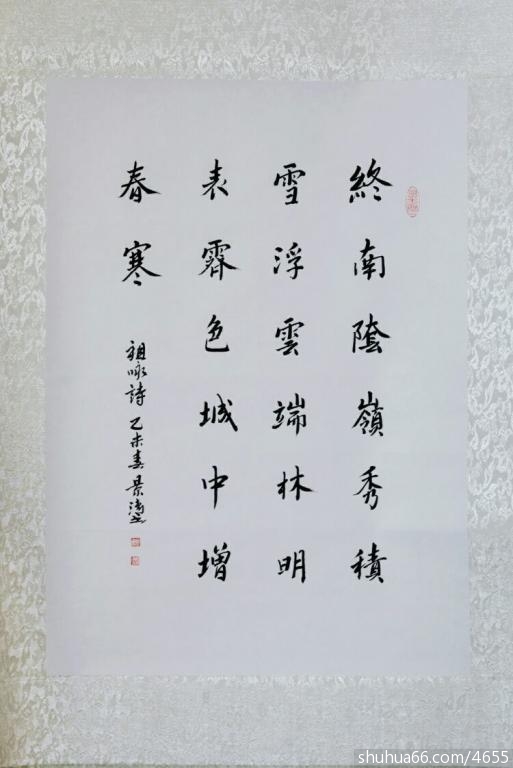 終南陰嶺秀積
雪浮雲端林明
表霽色城中增
春寒
祖咏詩 乙未春 景
shuhua66.com/4655